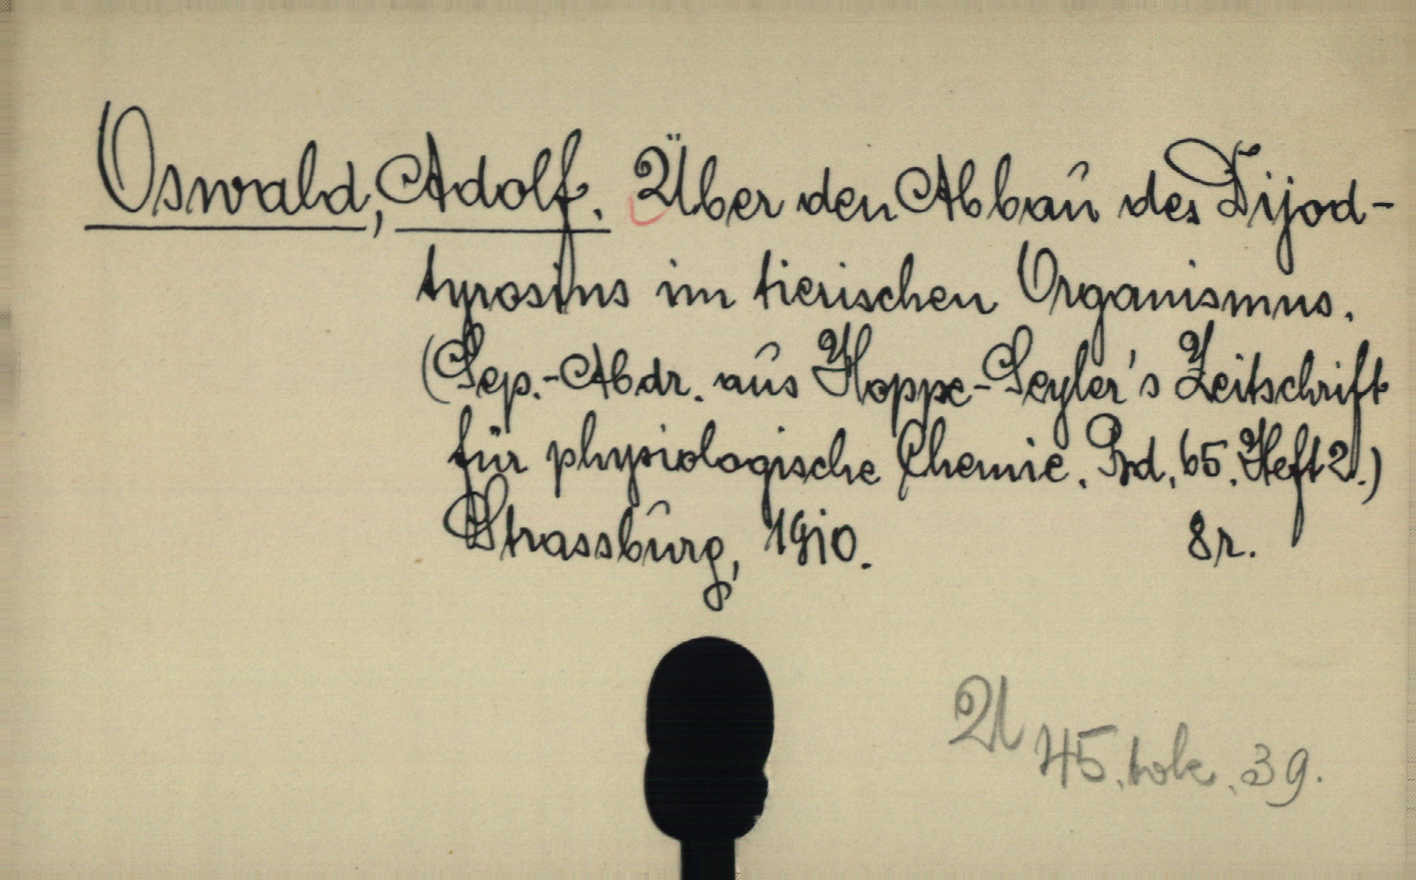 Oswald, Adolf. Über den Abbau des Dijod-
tyrosins im tierischen Organismus.
(Sep.-Abdr. aus Hoppe-Seyler's Zeitschrift
für physiologische Chemie. Bd. 65. Heft 2.)
Strassburg, 1910. 8r.
A 45. tok. 39.